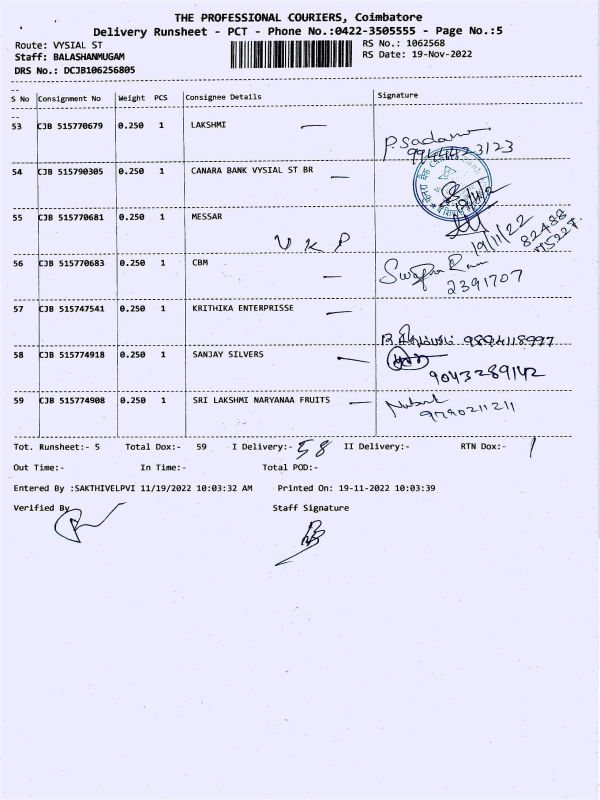 THE PROFESSIONAL COURIERS, Coimbatore
Delivery Runsheet - PCT - Phone No.:0422-3505555 - Page No.:5
Route: VYSIAL ST RS No.: 1062568
Staff: BALASHANMUGAM RS Date: 19-Nov-2022
DRS No.: DCJB106256805
S No Consignment No Weight PCS Consignee Details Signature
53 CJB 515770679 0.250 1 LAKSHMI
9944423123
54 CJB 515790305 0.250 1 CANARA BANK VYSIAL ST BR
55 CJB 515770681 0.250 1 MESSAR
V K P 19/11/22 82488
56 CJB 515770683 0.250 1 CBM
2391707
57 CJB 515747541 0.250 1 KRITHIKA ENTERPRISSE
9894118997
58 CJB 515774918 0.250 1 SANJAY SILVERS
9043289142
59 CJB 515774908 0.250 1 SRI LAKSHMI NARYANAA FRUITS
9790211211
Tot. Runsheet:- 5 Total Dox:- 59 I Delivery:- 58 II Delivery:- RTN Dox:- 1
Out Time:- In Time:- Total POD:-
Entered By :SAKTHIVELPVI 11/19/2022 10:03:32 AM Printed On: 19-11-2022 10:03:39
Verified By Staff Signature